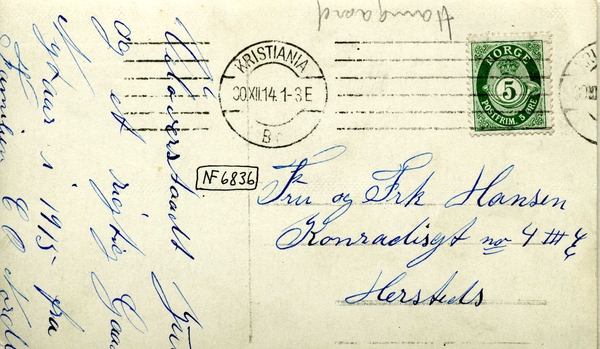 Haugaard
KRISTIANIA
30XII14.1-3E
Br
NORGE
5
POSTFRIM. 5 ØRE
NF6836
Fru og Frk Hansen
Konradisgt no 4 III
Hersteds
og et rigtig
Nytaar i 1915 fra
Familien